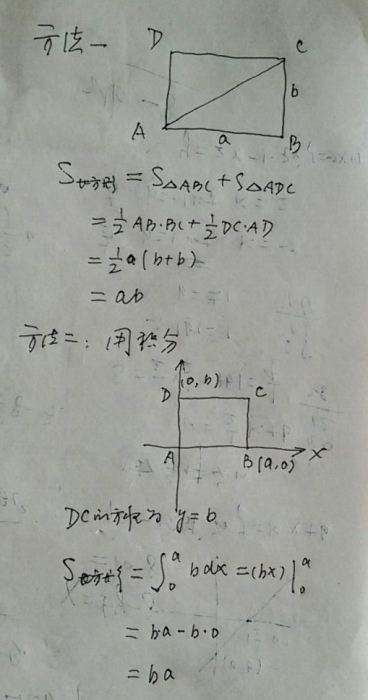 方法一
D
C
b
A
a
B
S长方形 = S△ABC + S△ADC
= 1/2 AB·BC + 1/2 DC·AD
= 1/2 a(b+b)
= ab
方法二：用积分
D (0,b) C
A B(a,0) x
DC的方程为 y=b
S长方形 = ∫₀ᵃ b dx = (bx)|₀ᵃ
= b·a - b·0
= ba